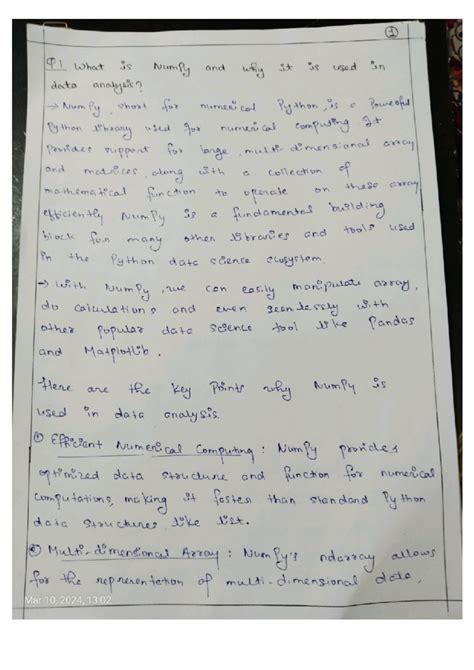 1
Q1 What is NumPy and why it is used in
data analysis?
→ NumPy, short for numerical Python, is a Powerful
Python library used for numerical computing It
Provides support for large, multi-dimensional array
and matrices, along with a collection of
mathematical function to operate on these array
efficiently NumPy is a fundamental building
block for many other libraries and tools used
in the Python data science ecosystem.
→ With NumPy, we can easily manipulate array,
do calculations and even seamlessly with
other popular data science tool like Pandas
and Matplotlib.
Here are the key Points why NumPy is
used in data analysis.
① Efficient Numerical Computing : NumPy provides
optimized data structure and function for numerical
computations, making it faster than standard Python
data structures like list.
② Multi-dimentional Array : NumPy's ndarray allows
for the representation of multi-dimensional data,
Mar 10, 2024, 13:02